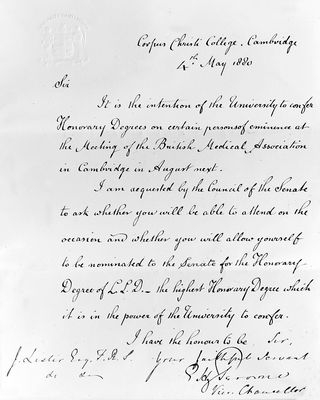 Corpus Christi College, Cambridge
4th May 1880
Sir
It is the intention of the University to confer
Honorary Degrees on certain persons of eminence at
the Meeting of the British Medical Association
in Cambridge in August next.
I am requested by the Council of the Senate
to ask whether you will be able to attend on the
occasion and whether you will allow yourself
to be nominated to the Senate for the Honorary
Degree of L.L.D. – the highest Honorary Degree which
it is in the power of the University to confer.
I have the honour to be Sir,
your faithful Servant
J. Lister Esq. F.R.S.
Vice Chancellor